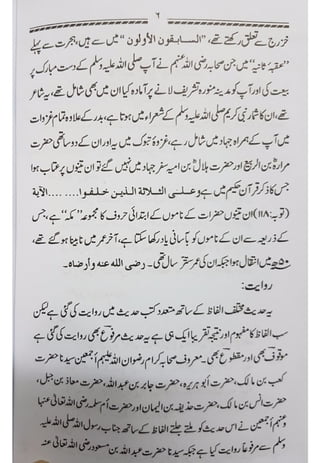 ۶
خزرج سے تعلق رکھتے تھے، "السابقون الأولون" میں سے ہیں، ہجرت سے پہلے
"عقبہ ثانیہ" میں جن صحابہ رضی اللہ عنہم نے آپ صلی اللہ علیہ وسلم کے دست مبارک پر
بیعت کی اور آپ کو مدینہ منورہ تشریف لانے پر آمادہ کیا ان میں بھی شامل تھے، یہ شاعر
تھے، ان کا شمار نبی کریم صلی اللہ علیہ وسلم کے شعراء میں ہوتا ہے، بدر کے علاوہ تمام غزوات
میں آپ کے ہمراہ جہاد میں شامل رہے، غزوۂ تبوک میں یہ اور ان کے دو ساتھی حضرت
مرارۃ بن الربیع اور حضرت ہلال بن امیہ سفر جہاد میں نہیں گئے تو ان تینوں پر عتاب ہوا
جس کا ذکر قرآن حکیم میں ہے وعلی الثلاثة الذين خلفوا ........ الآية
(توبہ: ۱۱۸) ان تینوں حضرات کے ناموں کے ابتدائی حروف کا مجموعہ "مکہ" ہے، جس
کے ذریعہ سے ان کے ناموں کو بآسانی یاد رکھا جا سکتا ہے، آخر عمر میں نابینا ہو گئے تھے،
۵۰ھ میں انتقال ہوا جبکہ ان کی عمر ستتر سال تھی۔ رضی الله عنه وارضاه۔
روایت:
یہ حدیث مختلف الفاظ کے ساتھ متعدد کتب حدیث میں روایت کی گئی ہے لیکن
سب الفاظ کا مفہوم اور نتیجہ تقریباً ایک ہی ہے یہ حدیث مرفوعاً بھی روایت کی گئی ہے
موقوفاً بھی اور مقطوعاً بھی۔ معروف صحابہ کرام رضوان اللہ علیہم أجمعین سیدنا حضرت
کعب بن مالک، حضرت ابو ہریرہ، حضرت جابر بن عبد اللہ، حضرت معاذ بن جبل،
حضرت انس بن مالک، حضرت حذیفہ بن الیمان اور حضرت أم سلمہ رضی اللہ تعالی عنہا
وعنہم أجمعین نے اس حدیث کو ملتے جلتے الفاظ کے ساتھ جناب رسول اللہ صلی اللہ علیہ
وسلم سے مرفوعاً روایت کیا ہے جبکہ سیدنا حضرت عبد اللہ بن مسعود رضی اللہ تعالی عنہ